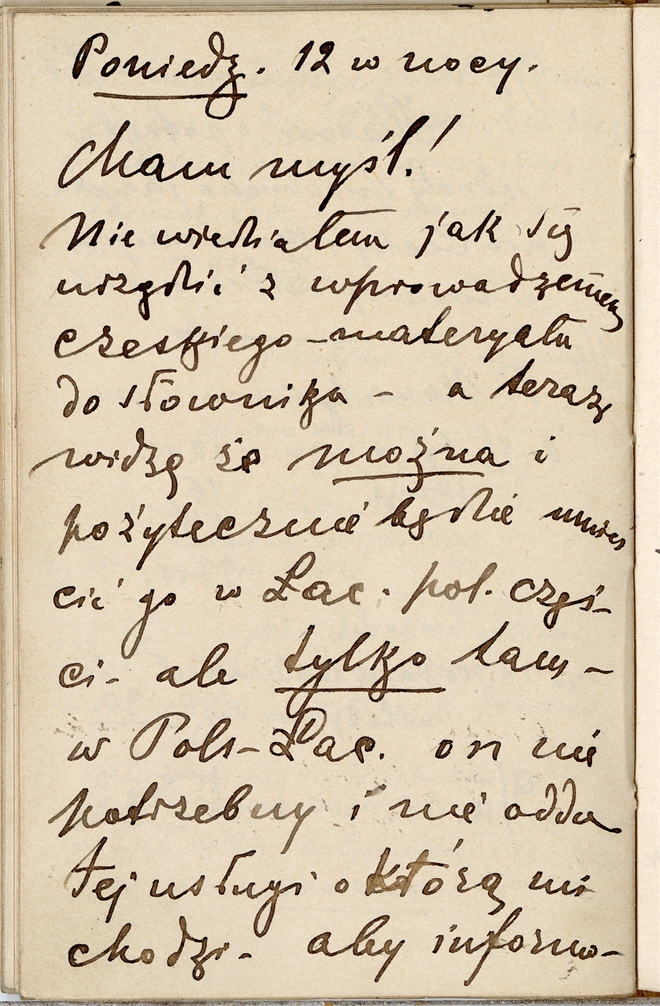 Poniedz. 12 w nocy.
Mam myśl!
Nie wiedziałem jak się
urządzić z wprowadzeniem
czeskiego-materyału
do słownika - a teraz
widzę że można i
pożytecznie będzie umieś
cić go w Łac. pol. częś-
ci- ale tylko tam-
w Pols-Łac. on nie
potrzebny i nie odda
tej usługi o którą mi
chodzi- aby informo-